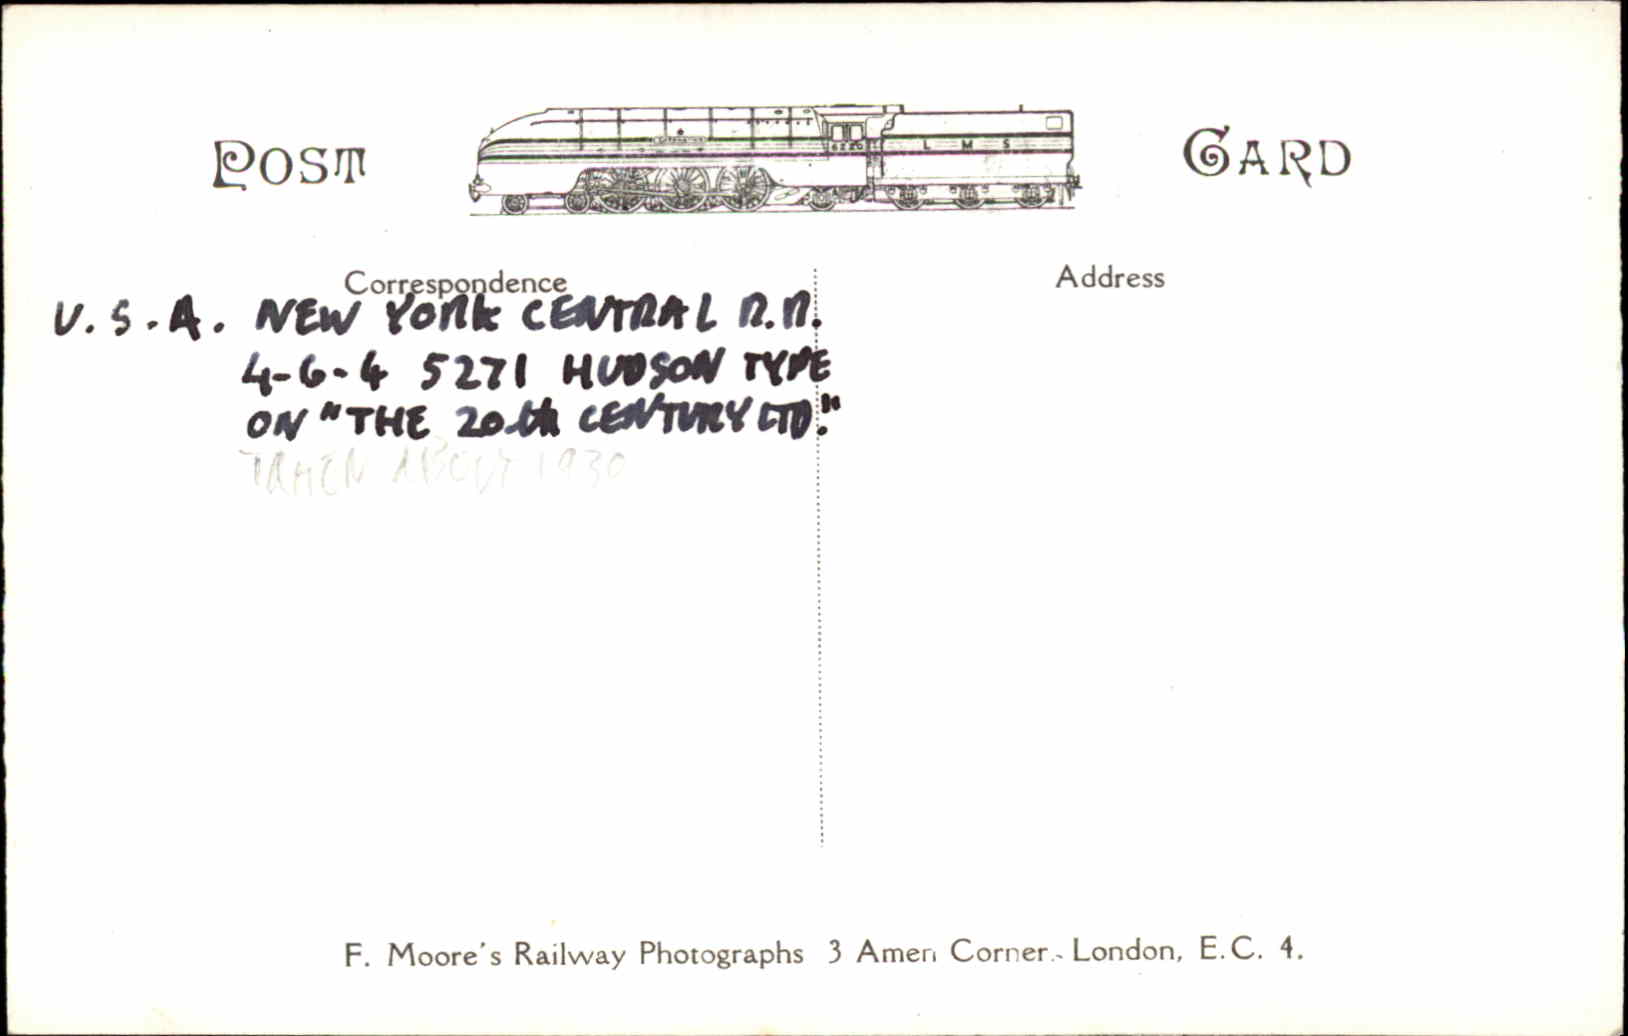 POST CARD
6220 L M S
Correspondence
Address
U.S.A. NEW YORK CENTRAL R.R.
4-6-4 5271 HUDSON TYPE
ON "THE 20th CENTURY LTD."
TAKEN ABOUT 1930
F. Moore's Railway Photographs 3 Amen Corner, London, E.C. 4.